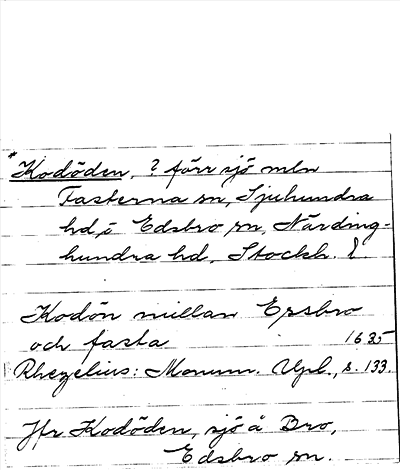 *Kodöden, ? förr sjö mln
Fasterna sn, Sjuhundra
hd, i Edsbro sn, Närding-
hundra hd, Stockh. l.
Kodön millan Ersbro
och fasta 1635
Rhezelius: Monum. Upl., s. 133.
Jfr Kodöden, sjö å Bro,
Edsbro sn.